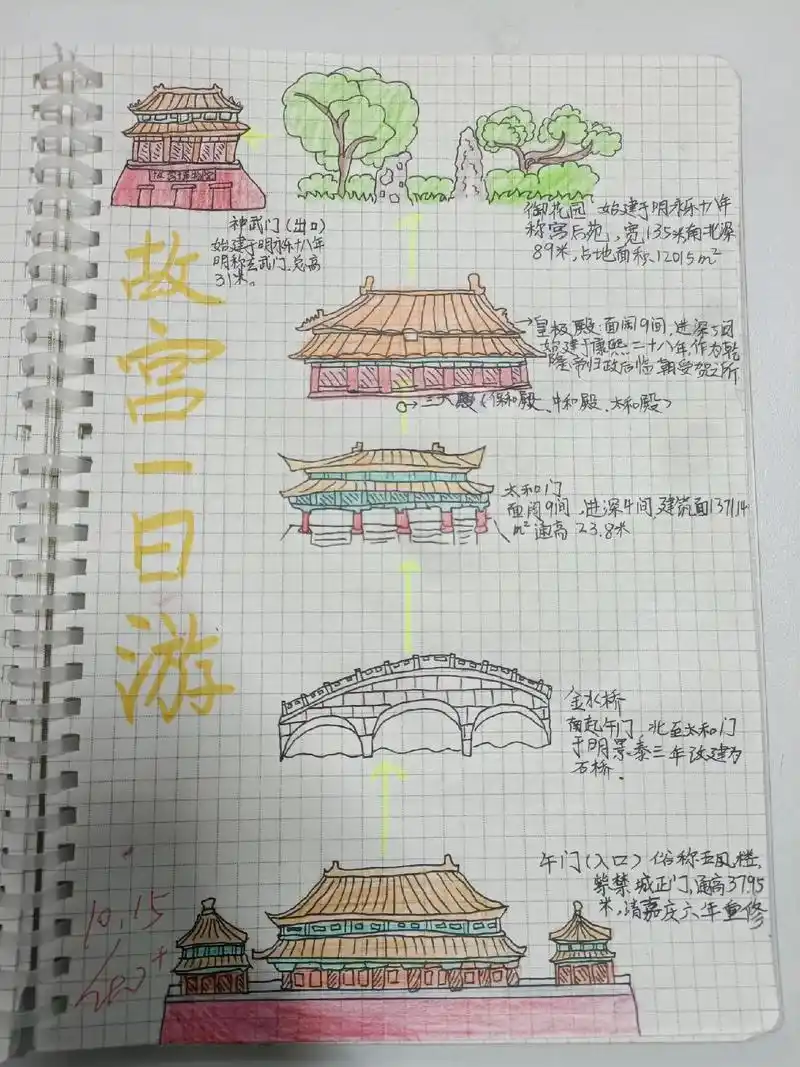 故宫一日游
神武门(出口)
始建于明永乐十八年
明称玄武门,总高
31米。
御花园 始建于明永乐十八年
称宫后苑,宽135米南北深
89米,占地面积12015m²
皇极殿:面阔9间,进深5间
始建于康熙二十八年,作为乾
隆帝归政后临朝受贺之所
三大殿(保和殿、中和殿、太和殿)
太和门
面阔9间,进深4间,建筑面1371.14
m²通高 23.8米
金水桥
南起午门,北至太和门
于明景泰三年改建为
石桥.
午门(入口) 俗称五凤楼,
紫禁城正门,通高37.95
米,清嘉庆六年重修
10.15